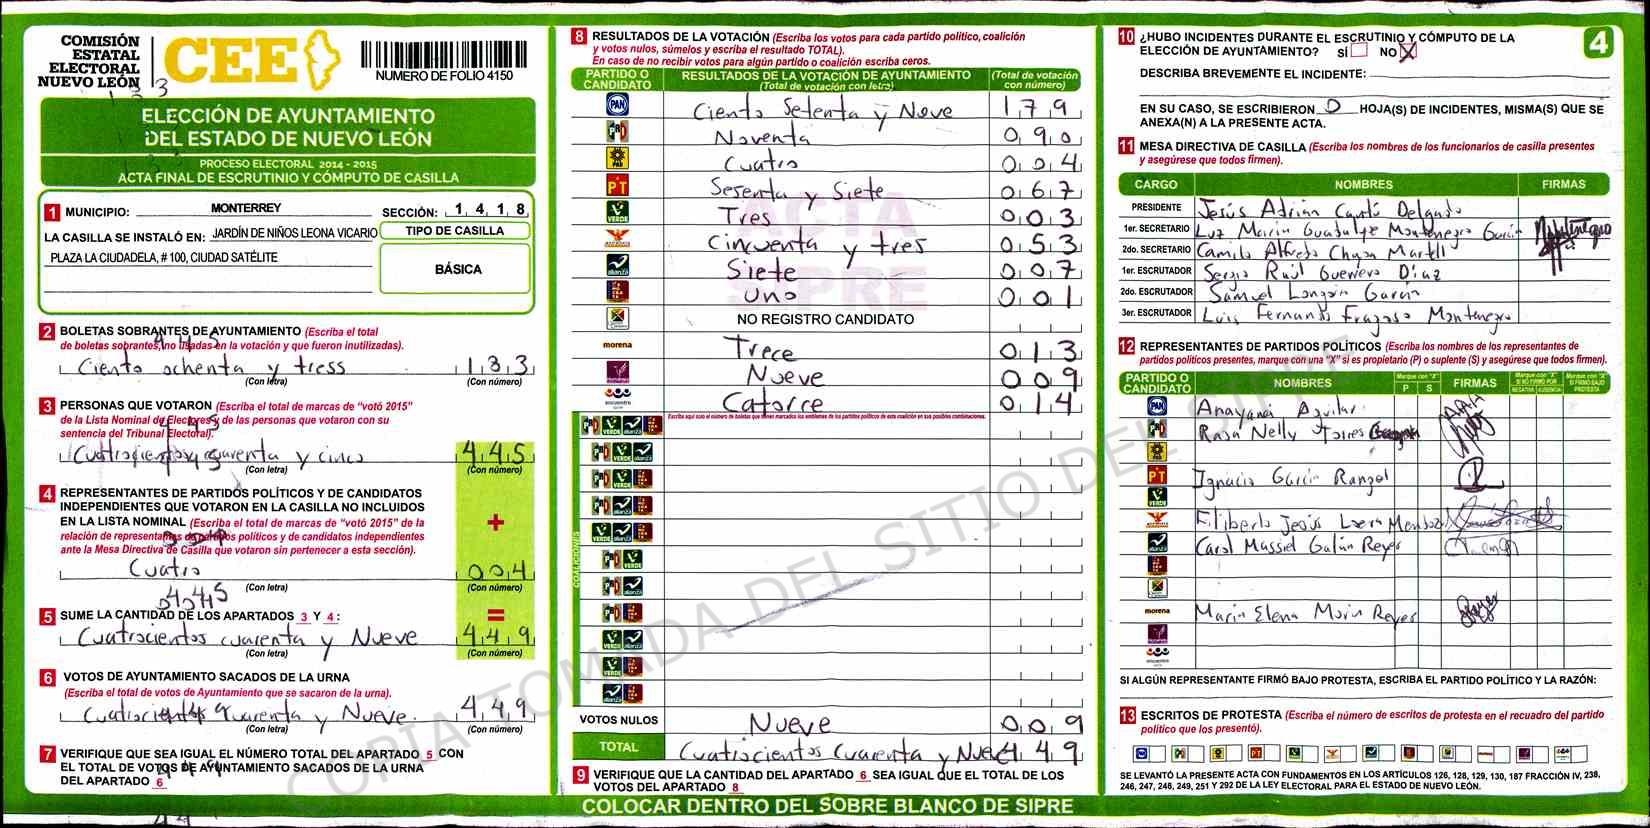 COMISIÓN
ESTATAL
ELECTORAL
NUEVO LEÓN
CEE
NUMERO DE FOLIO 4150
ELECCIÓN DE AYUNTAMIENTO
DEL ESTADO DE NUEVO LEÓN
PROCESO ELECTORAL 2014 - 2015
ACTA FINAL DE ESCRUTINIO Y CÓMPUTO DE CASILLA
1 MUNICIPIO: MONTERREY SECCIÓN: 1 4 1 8
LA CASILLA SE INSTALÓ EN: JARDÍN DE NIÑOS LEONA VICARIO
PLAZA LA CIUDADELA, # 100, CIUDAD SATÉLITE
TIPO DE CASILLA
BÁSICA
2 BOLETAS SOBRANTES DE AYUNTAMIENTO (Escriba el total
de boletas sobrantes, no usadas en la votación y que fueron inutilizadas).
Ciento ochenta y tress 183
(Con letra) (Con número)
3 PERSONAS QUE VOTARON (Escriba el total de marcas de "votó 2015"
de la Lista Nominal de Electores y de las personas que votaron con su
sentencia del Tribunal Electoral).
Cuatrocientos cuarenta y cinco 445
(Con letra) (Con número)
4 REPRESENTANTES DE PARTIDOS POLÍTICOS Y DE CANDIDATOS
INDEPENDIENTES QUE VOTARON EN LA CASILLA NO INCLUIDOS
EN LA LISTA NOMINAL (Escriba el total de marcas de "votó 2015" de la
relación de representantes de partidos políticos y de candidatos independientes
ante la Mesa Directiva de Casilla que votaron sin pertenecer a esta sección).
+
Cuatro 004
(Con letra) (Con número)
5 SUME LA CANTIDAD DE LOS APARTADOS 3 Y 4: =
Cuatrocientos cuarenta y Nueve 449
(Con letra) (Con número)
6 VOTOS DE AYUNTAMIENTO SACADOS DE LA URNA
(Escriba el total de votos de Ayuntamiento que se sacaron de la urna).
Cuatrocientos Cuarenta y Nueve 449
(Con letra) (Con número)
7 VERIFIQUE QUE SEA IGUAL EL NÚMERO TOTAL DEL APARTADO 5 CON
EL TOTAL DE VOTOS DE AYUNTAMIENTO SACADOS DE LA URNA
DEL APARTADO 6
8 RESULTADOS DE LA VOTACIÓN (Escriba los votos para cada partido político, coalición
y votos nulos, súmelos y escriba el resultado TOTAL).
En caso de no recibir votos para algún partido o coalición escriba ceros.
PARTIDO O CANDIDATO RESULTADOS DE LA VOTACIÓN DE AYUNTAMIENTO (Total de votación con letra) (Total de votación con número)
PAN Ciento Setenta y Nueve 179
PRD Noventa 090
Cuatro 004
PT Sesenta y Siete 067
VERDE Tres 003
Cincuenta y tres 053
alianza Siete 007
Uno 01
NO REGISTRO CANDIDATO
morena Trece 013
Nueve 009
encuentro Catorce 014
Escriba aquí solo el número de boletas que tienen marcados los emblemas de los partidos políticos de esta coalición en sus posibles combinaciones.
COALICIONES
VOTOS NULOS Nueve 009
TOTAL Cuatrocientos Cuarenta y Nueve 449
9 VERIFIQUE QUE LA CANTIDAD DEL APARTADO 6 SEA IGUAL QUE EL TOTAL DE LOS
VOTOS DEL APARTADO 8
COLOCAR DENTRO DEL SOBRE BLANCO DE SIPRE
ACTA
SIPRE
COPIA TOMADA DEL SITIO DEL SIPRE
4
10 ¿HUBO INCIDENTES DURANTE EL ESCRUTINIO Y CÓMPUTO DE LA
ELECCIÓN DE AYUNTAMIENTO? SÍ NO X
DESCRIBA BREVEMENTE EL INCIDENTE:
EN SU CASO, SE ESCRIBIERON 0 HOJA(S) DE INCIDENTES, MISMA(S) QUE SE
ANEXA(N) A LA PRESENTE ACTA.
11 MESA DIRECTIVA DE CASILLA (Escriba los nombres de los funcionarios de casilla presentes
y asegúrese que todos firmen).
CARGO NOMBRES FIRMAS
PRESIDENTE Jesús Adrián Cantú Delgado
1er. SECRETARIO Luz María Guadalupe Montenegro García
2do. SECRETARIO Camilo Alfredo Chapa Martell
1er. ESCRUTADOR Sergio Raúl Guerrero Díaz
2do. ESCRUTADOR Samuel Longoria García
3er. ESCRUTADOR Luis Fernando Fragoso Montenegro
12 REPRESENTANTES DE PARTIDOS POLÍTICOS (Escriba los nombres de los representantes de
partidos políticos presentes, marque con una "X" si es propietario (P) o suplente (S) y asegúrese que todos firmen).
PARTIDO O CANDIDATO NOMBRES Marque con "X" P S FIRMAS Marque con "X" SI NO FIRMÓ POR NEGATIVA AUSENCIA Marque con "X" SI FIRMÓ BAJO PROTESTA
PAN Anayansi Aguilar
Rosa Nelly Torres
PT Ignacio García Rangel
Eliberto Jesús Loera Mendoza
Carol Massiel Galván Reyes
morena María Elena Morín Reyes
SI ALGÚN REPRESENTANTE FIRMÓ BAJO PROTESTA, ESCRIBA EL PARTIDO POLÍTICO Y LA RAZÓN:
13 ESCRITOS DE PROTESTA (Escriba el número de escritos de protesta en el recuadro del partido
político que los presentó).
SE LEVANTÓ LA PRESENTE ACTA CON FUNDAMENTOS EN LOS ARTÍCULOS 126, 128, 129, 130, 187 FRACCIÓN IV, 238,
246, 247, 248, 249, 251 Y 292 DE LA LEY ELECTORAL PARA EL ESTADO DE NUEVO LEÓN.